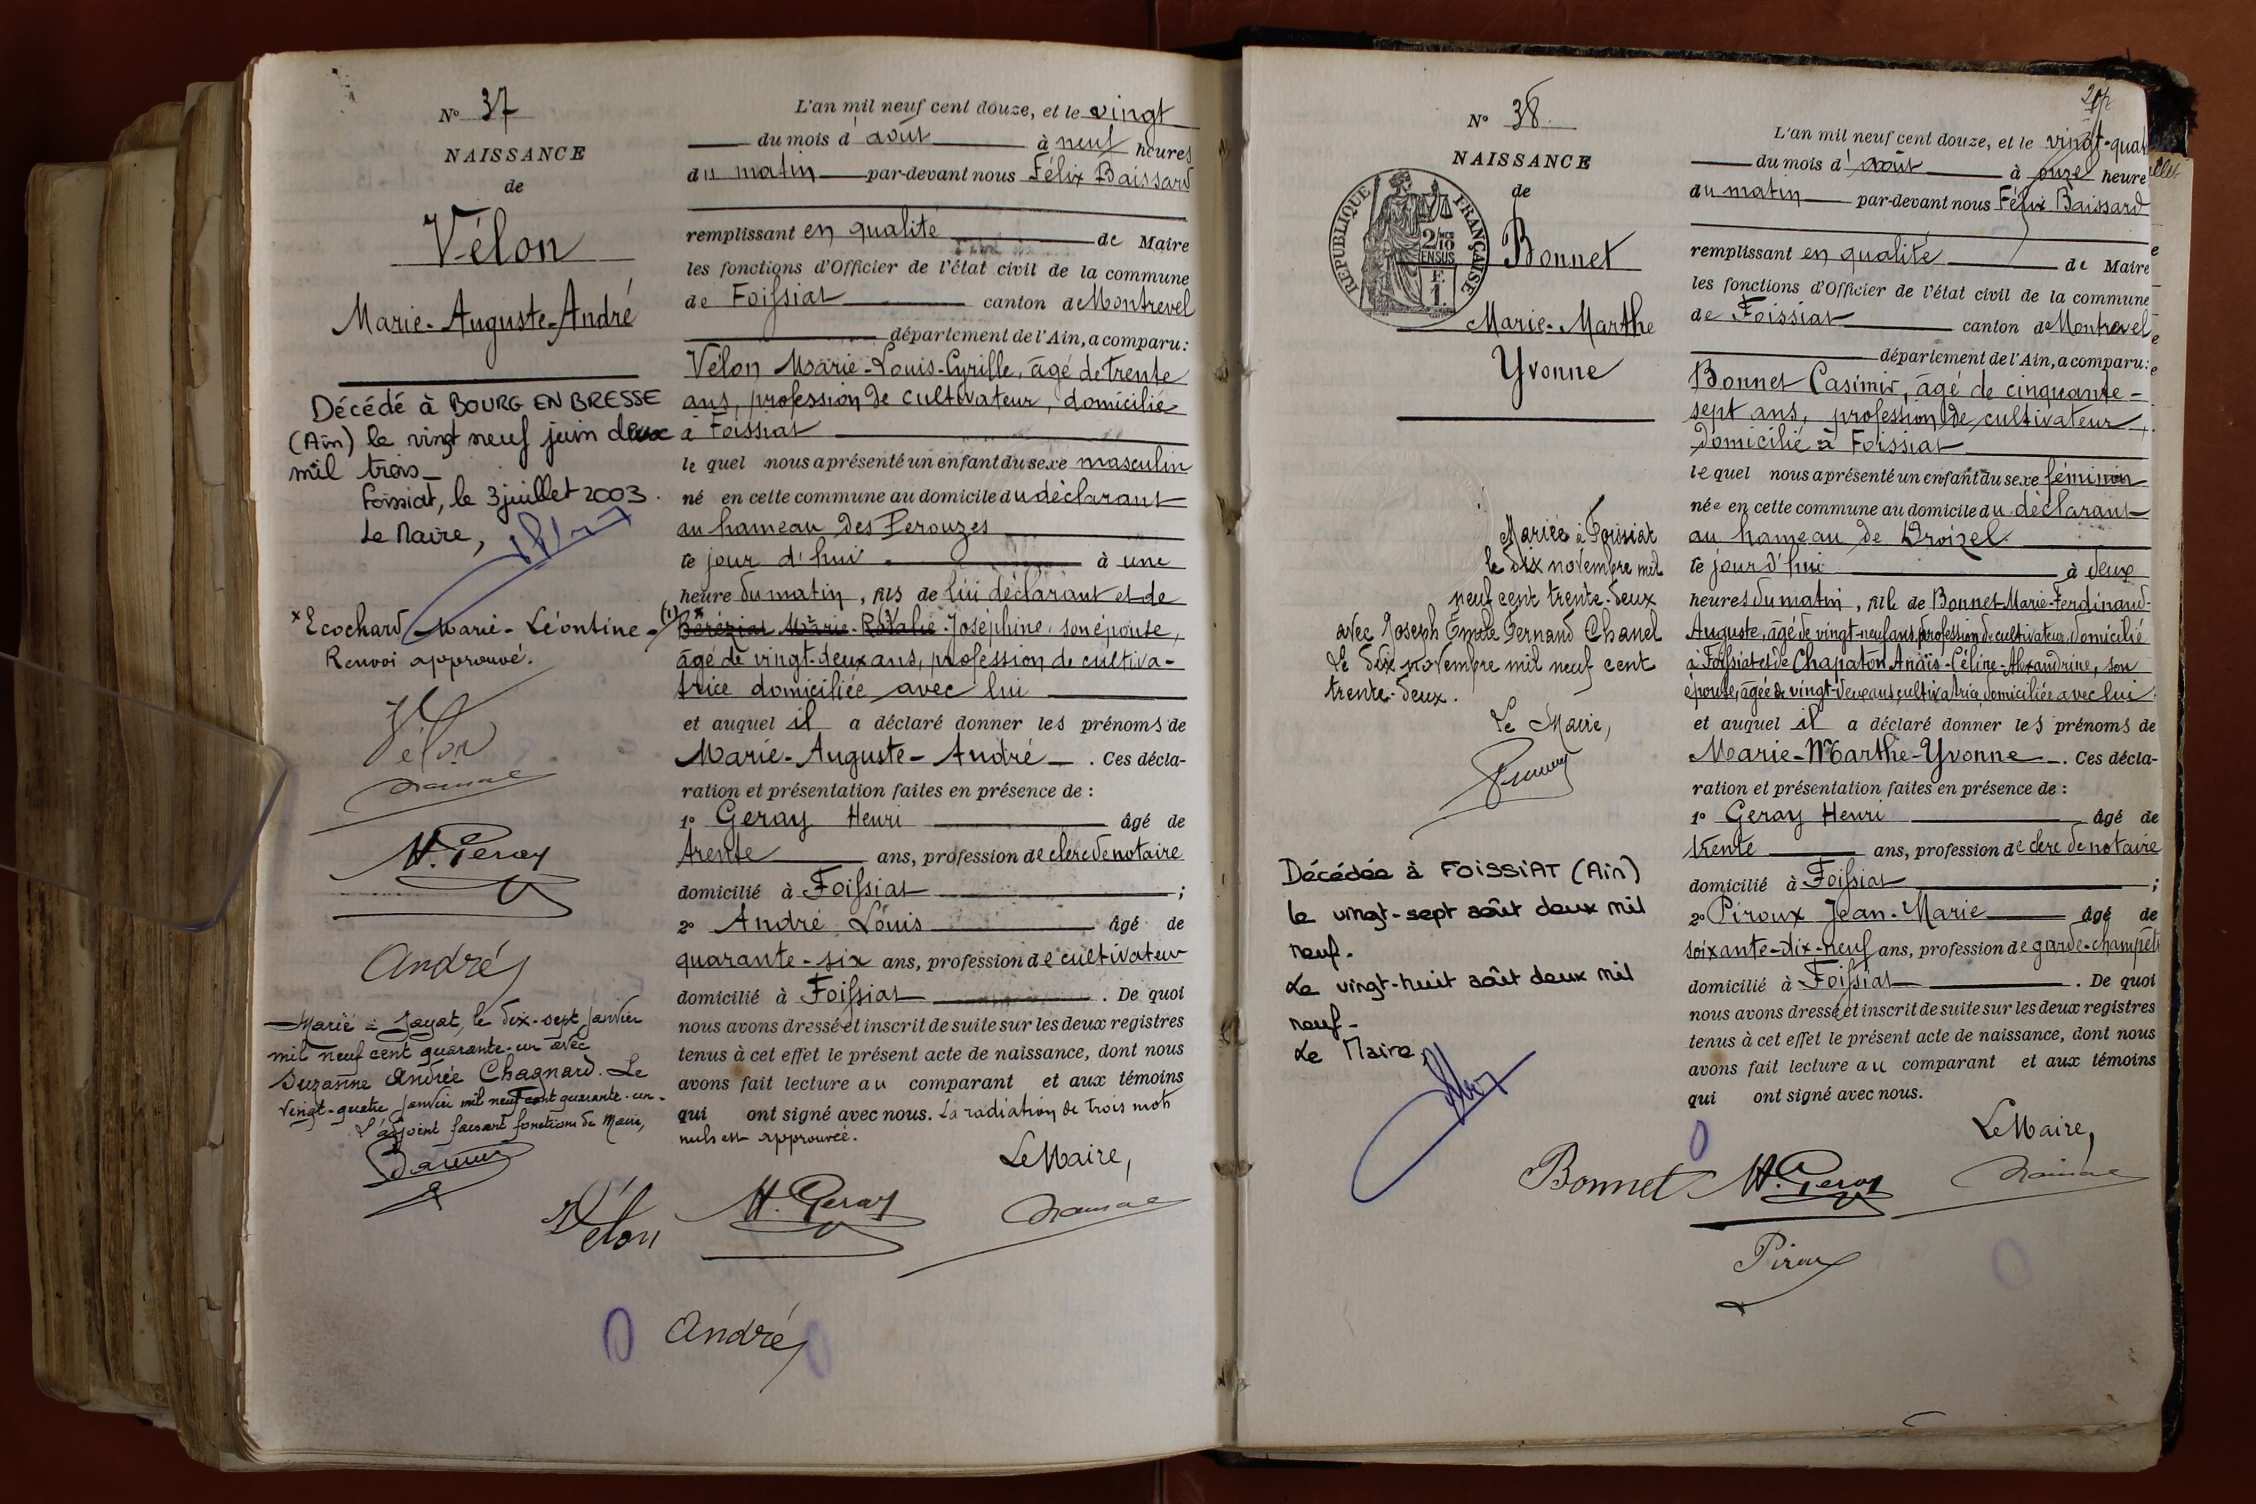 N° 37
NAISSANCE
de
Vélon
Marie-Auguste-André
Décédé à BOURG EN BRESSE
(Ain) le vingt neuf juin deux
mil trois_
Foissiat, le 3 juillet 2003.
Le Maire,
x Ecochard Marie-Léontine-
Renvoi approuvé.
Vélon
H. Geray
André
Marié à Jayat, le dix-sept janvier
mil neuf cent quarante-un avec
Suzanne Andrée Chagnard. Le
vingt-quatre janvier mil neuf cent quarante-un.
L'adjoint faisant fonctions de Maire,
L'an mil neuf cent douze, et le vingt
du mois d'août à neuf heures
du matin par-devant nous Félix Baissard
remplissant en qualité de Maire
les fonctions d'Officier de l'état civil de la commune
de Foissiat canton de Montrevel
département de l'Ain, a comparu:
Vélon Marie-Louis-Cyrille, âgé de trente
ans, profession de cultivateur, domicilié
à Foissiat
le quel nous a présenté un enfant du sexe masculin
né en cette commune au domicile du déclarant
au hameau des Perouzes
ce jour d'hui à une
heure du matin, fils de lui déclarant et de
(1) x Béréziat Marie-Rosalie-Joséphine, son épouse,
âgé de vingt-deux ans, profession de cultiva-
trice domiciliée avec lui
et auquel il a déclaré donner les prénoms de
Marie-Auguste-André. Ces décla-
ration et présentation faites en présence de :
1° Geray Henri âgé de
trente ans, profession de clerc de notaire
domicilié à Foissiat ;
2° André Louis âgé de
quarante-six ans, profession de cultivateur
domicilié à Foissiat. De quoi
nous avons dressé et inscrit de suite sur les deux registres
tenus à cet effet le présent acte de naissance, dont nous
avons fait lecture au comparant et aux témoins
qui ont signé avec nous. La radiation de trois mots
nuls est approuvée.
Le Maire,
Vélon H. Geray
André
N° 38.
NAISSANCE
de
REPUBLIQUE FRANÇAISE
2/10 EN SUS
F. 1.
Bonnet
Marie-Marthe
Yvonne
Mariée à Foissiat
le dix novembre mil
neuf cent trente-deux
avec Joseph Emile Fernand Chanel
Le dix novembre mil neuf cent
trente-deux.
Le Maire,
Décédée à FOISSIAT (Ain)
le vingt-sept août deux mil
neuf.
Le vingt-huit août deux mil
neuf-
Le Maire,
L'an mil neuf cent douze, et le vingt-quat
du mois d'août à onze heure
du matin par-devant nous Félix Baissard
remplissant en qualité de Maire
les fonctions d'Officier de l'état civil de la commune
de Foissiat canton de Montrevel
département de l'Ain, a comparu:
Bonnet Casimir, âgé de cinquante-
sept ans, profession de cultivateur,
domicilié à Foissiat
le quel nous a présenté un enfant du sexe féminin
née en cette commune au domicile du déclarant
au hameau de Broizel
ce jour d'hui à deux
heures du matin, fille de Bonnet Marie-Ferdinand-
Auguste, âgé de vingt-neuf ans, profession de cultivateur, domicilié
à Foissiat et de Chapaton Anaïs-Céline-Alexandrine, son
épouse, âgée de vingt-deux ans, cultivatrice, domiciliée avec lui.
et auquel il a déclaré donner les prénoms de
Marie-Marthe-Yvonne. Ces décla-
ration et présentation faites en présence de :
1° Geray Henri âgé de
trente ans, profession de clerc de notaire
domicilié à Foissiat ;
2° Piroux Jean-Marie âgé de
soixante-dix-neuf ans, profession de garde-champêt
domicilié à Foissiat. De quoi
nous avons dressé et inscrit de suite sur les deux registres
tenus à cet effet le présent acte de naissance, dont nous
avons fait lecture au comparant et aux témoins
qui ont signé avec nous.
Le Maire,
Bonnet H. Geray
Piroux